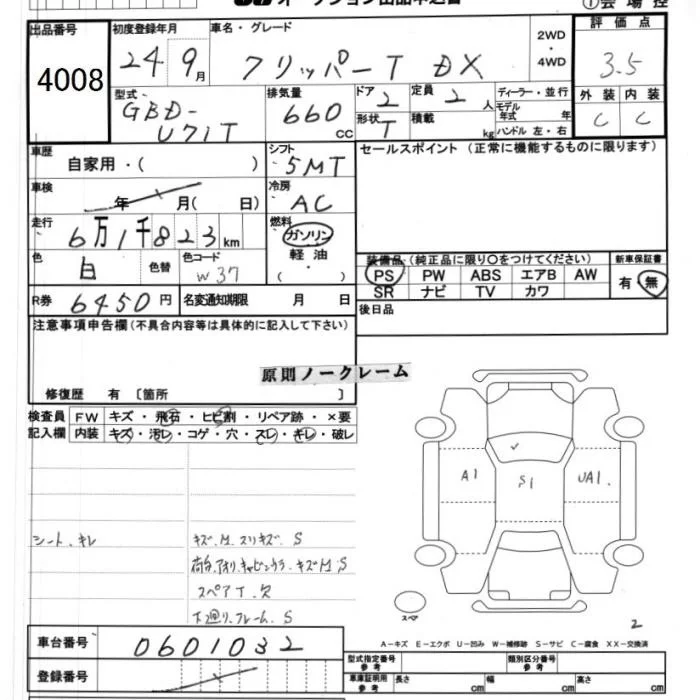 オークション出品申込書
① 会 場 控
出品番号
4008
初度登録年月
24 9月
車名・グレード
クリッパーT DX
2WD
・
4WD
評 価 点
3.5
外 装 内 装
C C
型式
GBD-
U71T
排気量
660 CC
ドア 2
形状 T
定員 2 人
積載 kg
ディーラー・並 行
モデル年式 年
ハンドル 左・右
車歴 自家用・( )
シフト 5MT
セールスポイント (正常に機能するものに限ります)
車検 年 月( 日)
冷房 AC
走行 6万1千823km
燃料 ガソリン
軽 油
・
( )
色 白 色替
色コード W37
装備品 (純正品に限り○をつけてください)
新車保証書
PS PW ABS エアB AW
有 無
SR ナビ TV カワ
R券 6450円 名変通知期限 月 日
後日品
注意事項申告欄(不具合内容等は具体的に記入して下さい)
原則ノークレーム
修復歴 有 〔箇所 〕
検査員 FW キズ・飛石・ヒビ割・リペア跡・×要
記入欄 内装 キズ・汚レ・コゲ・穴・スレ・キレ・破レ
A1 S1 UA1.
シート、キレ
キズ、M、スリキズ、S
荷台、アオリ、キャビンウラ、キズM、S
スペアT、欠
下廻り、フレーム、S
スペア
2
車台番号 0601032
A-キズ E-エクボ U-凹み W-補修跡 S-サビ C-腐食 XX-交換済
登録番号
型式指定番号
参 考
類別区分番号
参 考
車庫証明用
参 考
長さ cm 幅 cm 高さ cm